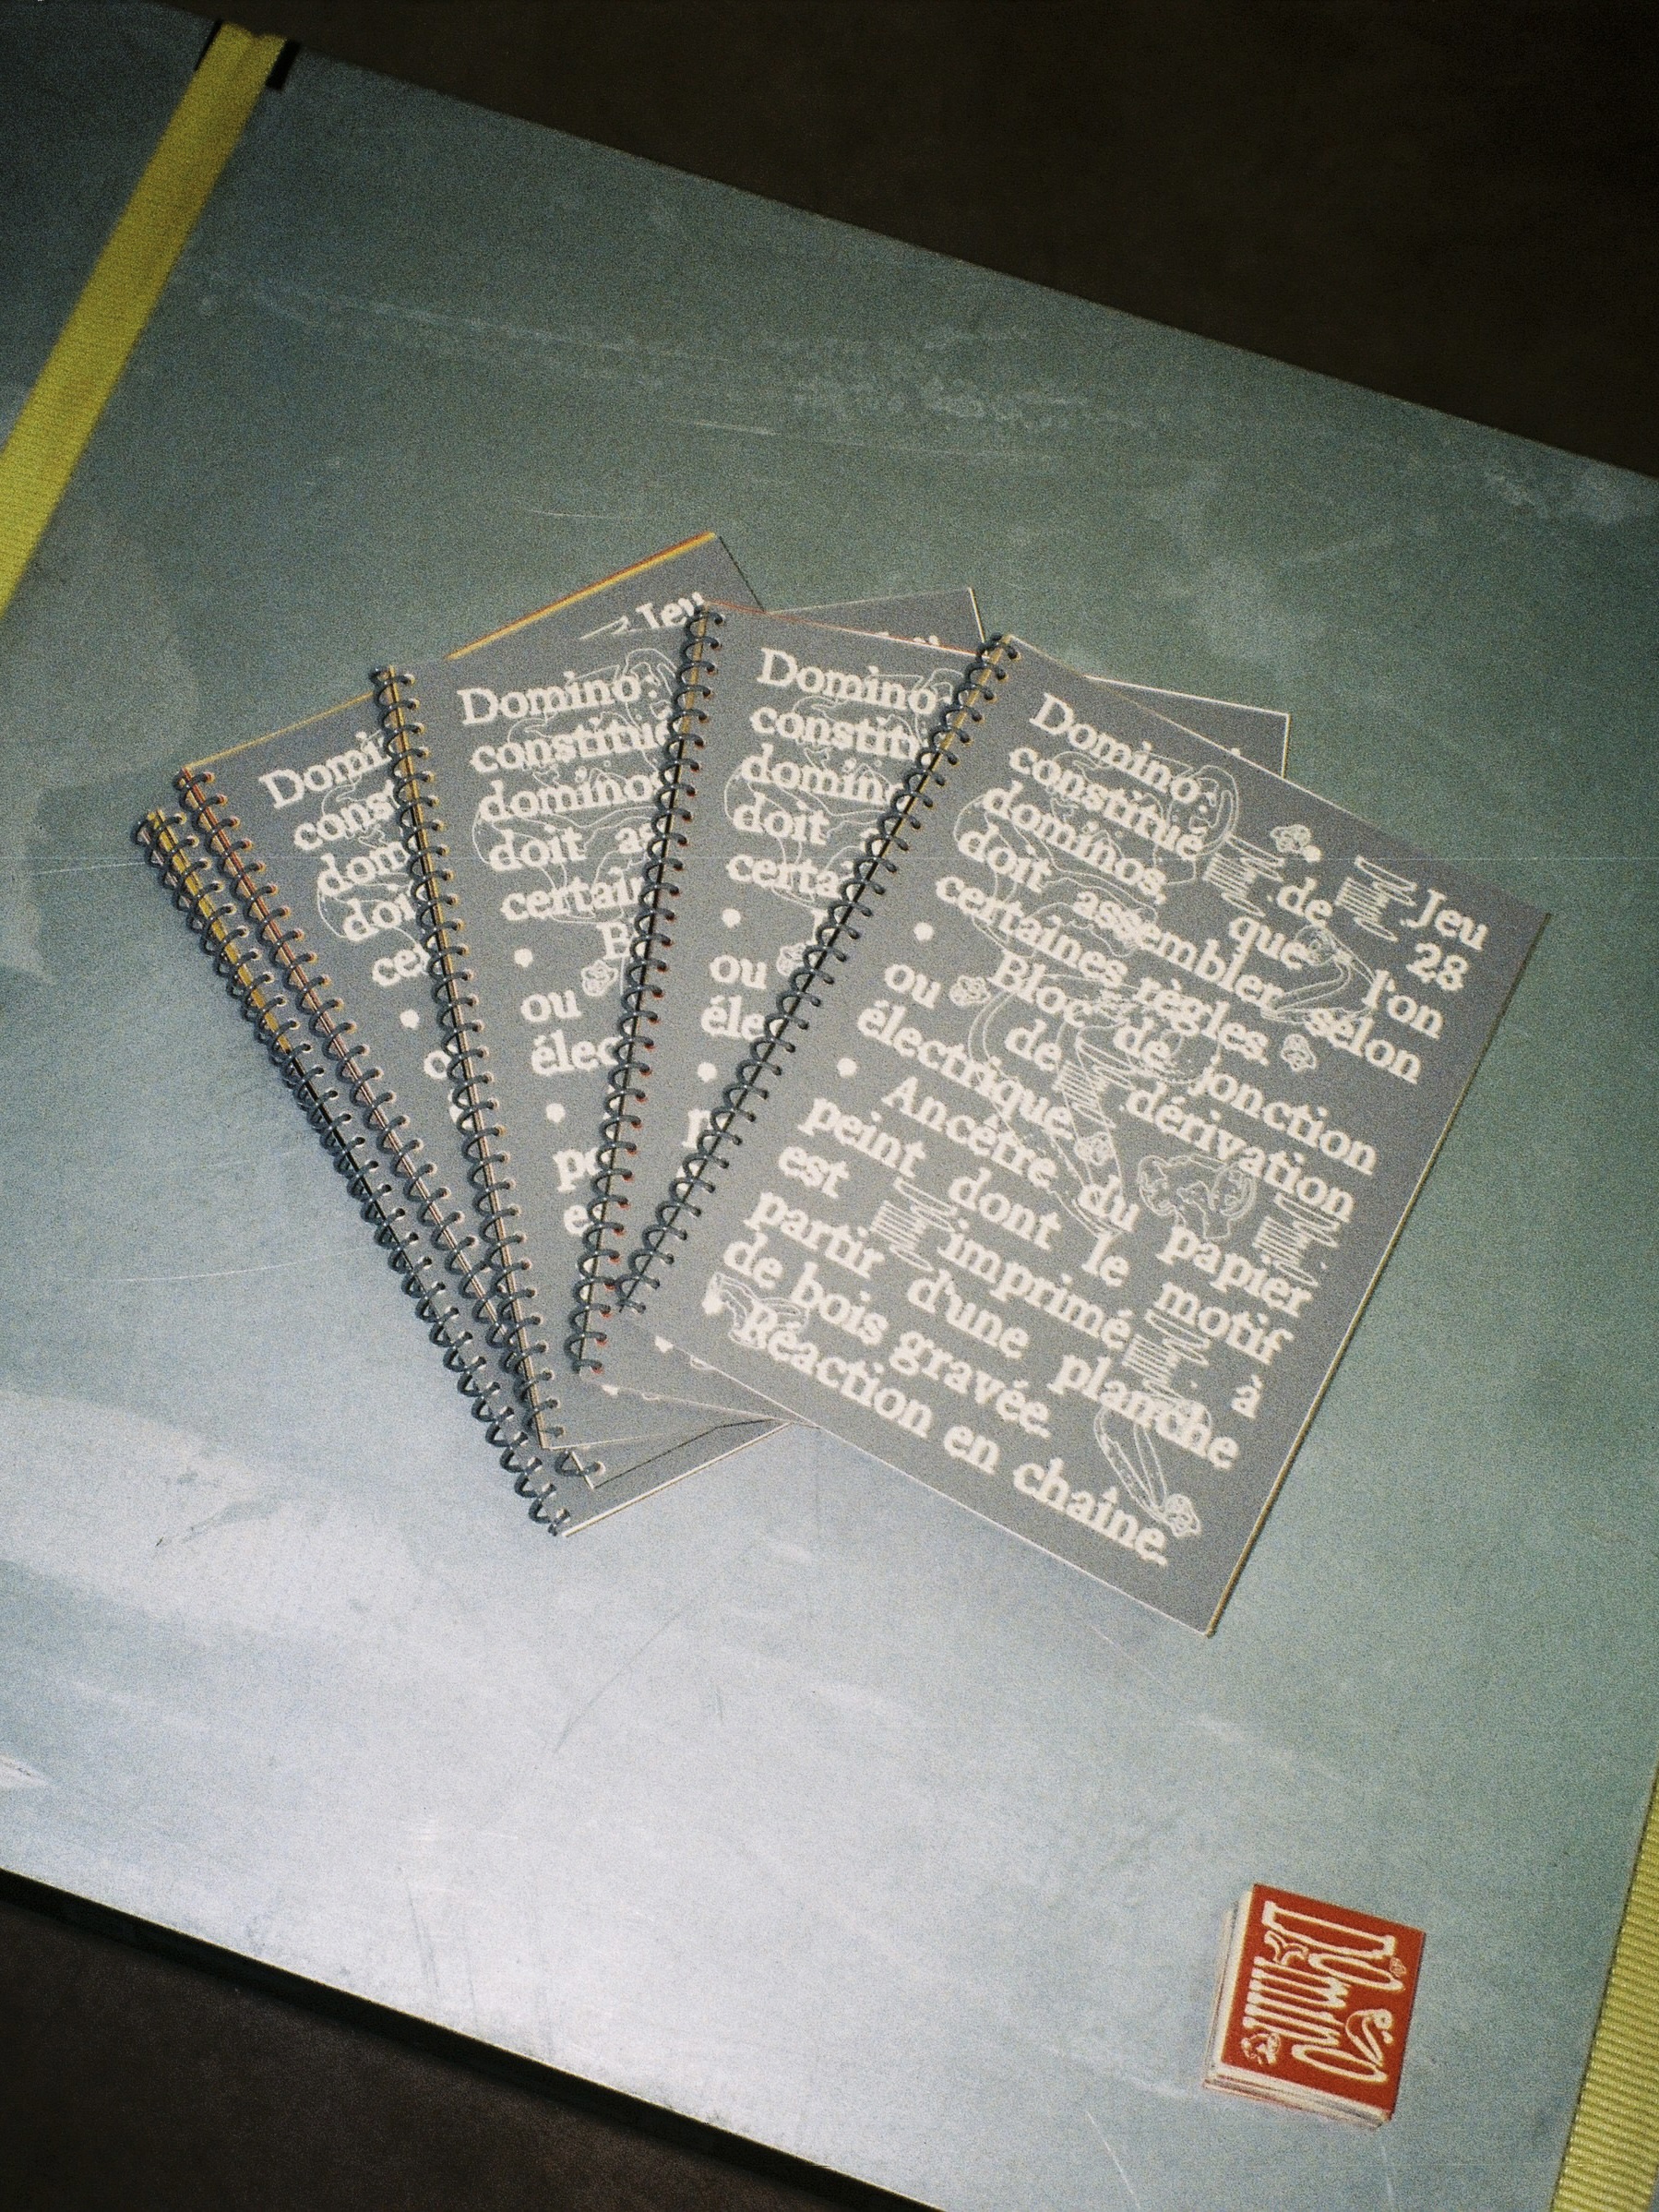 Domi
cons
dom
doi
ce
Jeu
Domino:
constitué
dominos
doit as
certain
• B
ou
élec
•
pe
Domino
constit
domino
doit
certa
•
ou
éle
•
Domino: • Jeu
constitué de 28
dominos, que l'on
doit assembler selon
certaines règles.
• Bloc de jonction
ou de dérivation
électrique
• Ancêtre du papier
peint dont le motif
est imprimé à
partir d'une planche
de bois gravée.
• Réaction en chaîne.
Domino